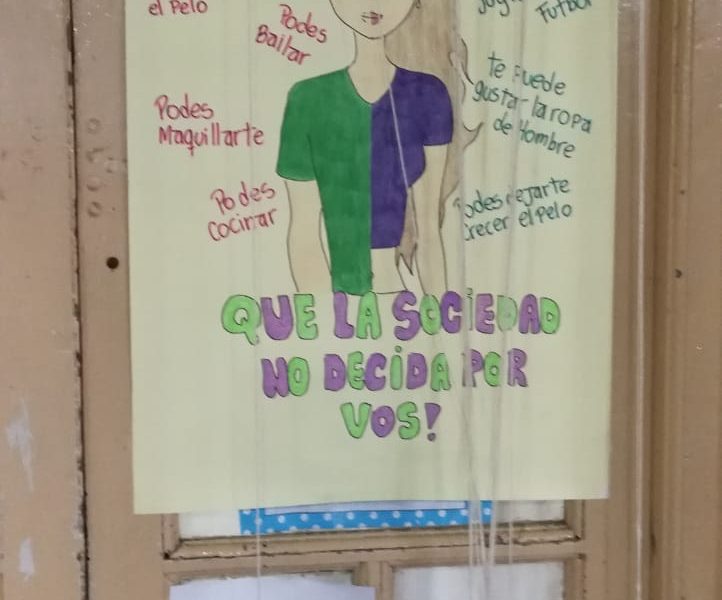 el Pelo
Podes
Bailar
Podes
Maquillarte
Podes
Cocinar
Futbol
te Puede
gustar la ropa
de Hombre
Podes dejarte
Crecer el Pelo
QUE LA SOCIEDAD
NO DECIDA POR
VOS!